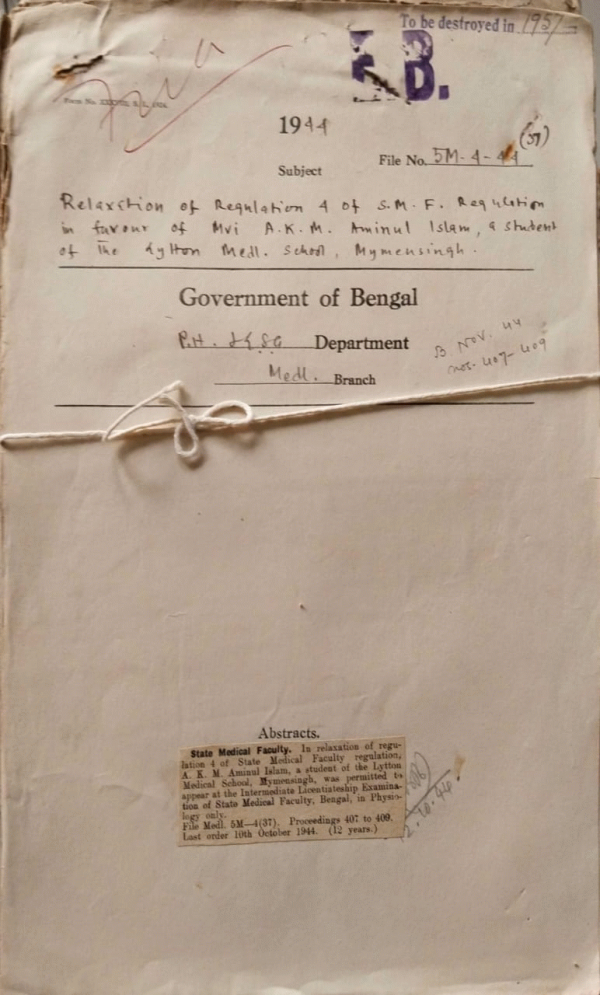 To be destroyed in 1957
B.
1944
(37)
File No. 5M-4-44
Subject
Relaxation of Regulation 4 of S.M.F. Regulation
in favour of Mvi A.K.M. Aminul Islam, a student
of the Lytton Medl. School, Mymensingh.
Government of Bengal
P.H. & L.S.G. Department
B Nov. 44
nos. 407-409
Medl. Branch
Abstracts.
State Medical Faculty. In relaxation of regu-
lation 4 of State Medical Faculty regulation,
A. K. M. Aminul Islam, a student of the Lytton
Medical School, Mymensingh, was permitted to
appear at the Intermediate Licentiateship Examina-
tion of State Medical Faculty, Bengal, in Physio-
logy only.
File Medl. 5M—4(37). Proceedings 407 to 409.
Last order 10th October 1944. (12 years.)